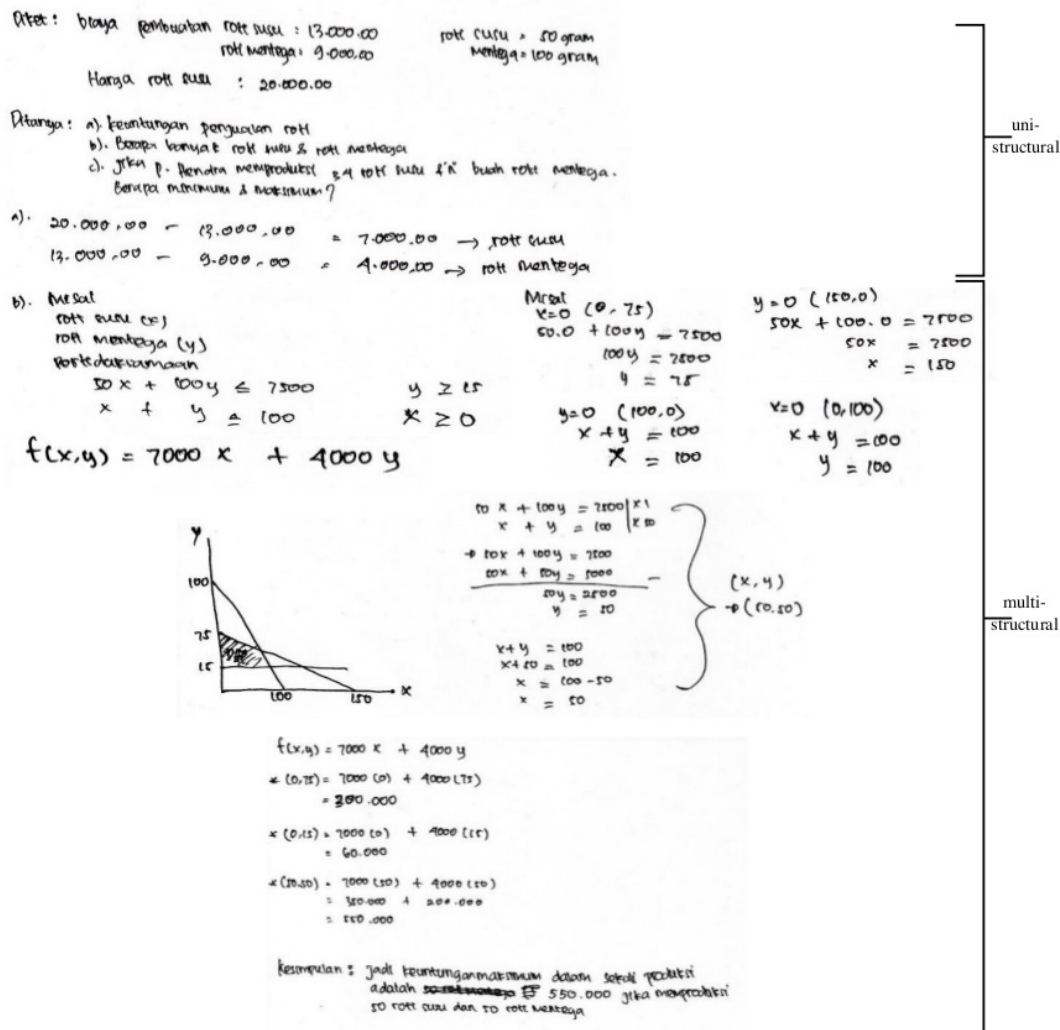 Diket : biaya pembuatan roti susu : 13.000.00 roti susu = 50 gram
roti mentega : 9.000,00 mentega = 100 gram
Harga roti susu : 20.000.00
Ditanya : a). keuntungan penjualan roti
b). Berapa banyak roti susu & roti mentega
c). jika p. Hendra memproduksi 34 roti susu & "n" buah roti mentega.
Berapa minimum & maksimum?
uni-
structural
a). 20.000,00 - 13.000,00 = 7.000.00 → roti susu
13.000,00 - 9.000,00 = 4.000,00 → roti mentega
b). Misal
roti susu (x)
roti mentega (y)
50x + 100y ≤ 7500 y ≥ 15
x + y ≤ 100 x ≥ 0
f(x,y) = 7000 x + 4000 y
Misal
x=0 (0, 75)
50.0 + 100y = 7500
100y = 7500
y = 75
y=0 (150,0)
50x + 100.0 = 7500
50x = 7500
x = 150
y=0 (100,0)
x + y = 100
x = 100
x=0 (0,100)
x + y = 100
y = 100
y
100
75
15
100 150 x
50x + 100y = 7500 | x1
x + y = 100 | x50
→ 50x + 100y = 7500
50x + 50y = 5000 -
50y = 2500
y = 50
x+y = 100
x+50 = 100
x = 100-50
x = 50
(x, y)
→ (50.50)
multi-
structural
f(x,y) = 7000 x + 4000 y
* (0,75) = 7000 (0) + 4000 (75)
= 300.000
* (0,15) = 7000 (0) + 4000 (15)
= 60.000
* (50.50) = 7000 (50) + 4000 (50)
= 350.000 + 200.000
= 550.000
kesimpulan : jadi keuntungan maksimum dalam sekali produksi
adalah 550.000 jika memproduksi
50 roti susu dan 50 roti mentega